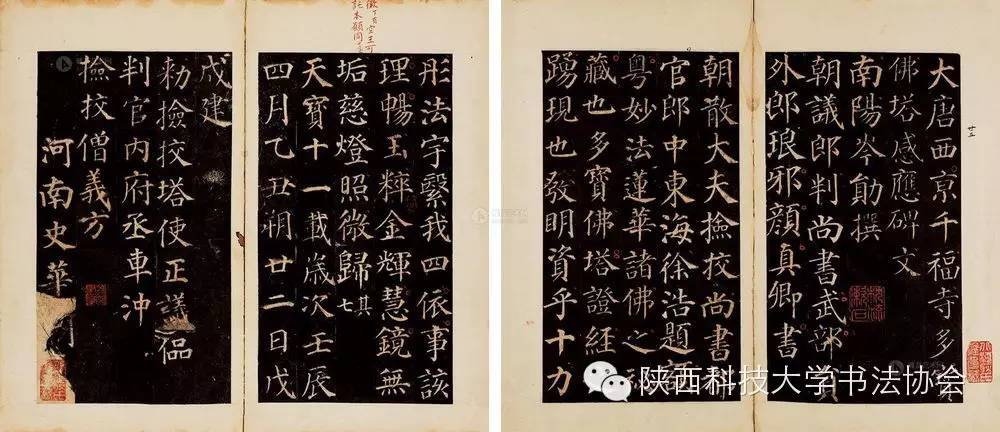 大唐西京千福寺多
佛塔感應碑文
南陽岑勛撰
朝議郎判尚書武部
外郎琅邪顏真卿書
朝散大夫撿挍尚書
官郎中東海徐浩題
粵妙法蓮華諸佛之
藏也多寶佛塔證經
踴現也發明資乎十力
彤法宇繫我四依事該
理暢玉粹金輝慧鏡無
垢慈燈照微歸其七
天寶十一載歲次壬辰
四月乙丑朔廿二日戊
戌建
勑撿挍塔使正議
判官內府丞車沖
撿挍僧義方
河南史華
廿五
陕西科技大学书法协会